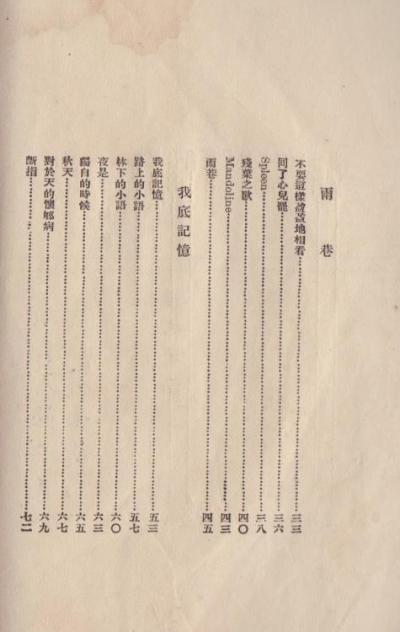 雨巷
不要這樣盈盈地相看……三三
回了心兒罷……三六
Spleen……三八
殘葉之歌……四〇
Mandoline……四三
雨巷……四五
我底記憶
我底記憶……五三
路上的小語……五七
林下的小語……六〇
夜是……六三
獨自的時候……六五
秋天……六七
對於天的懷鄉病……六九
斷指……七二